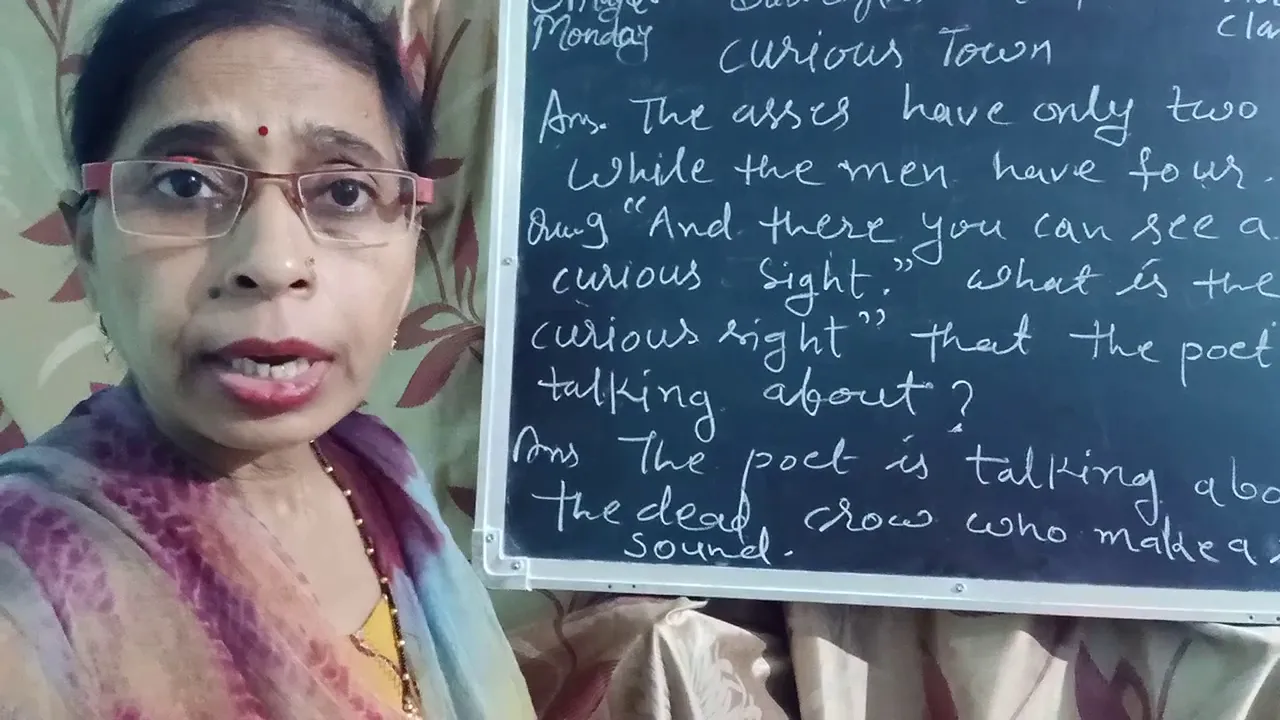 Monday
Curious Town
Ans. The asses have only two
while the men have four.
"And there you can see a
curious sight." what is the
curious sight" that the poet
talking about?
Ans The poet is talking
the dead crow who make a
sound.